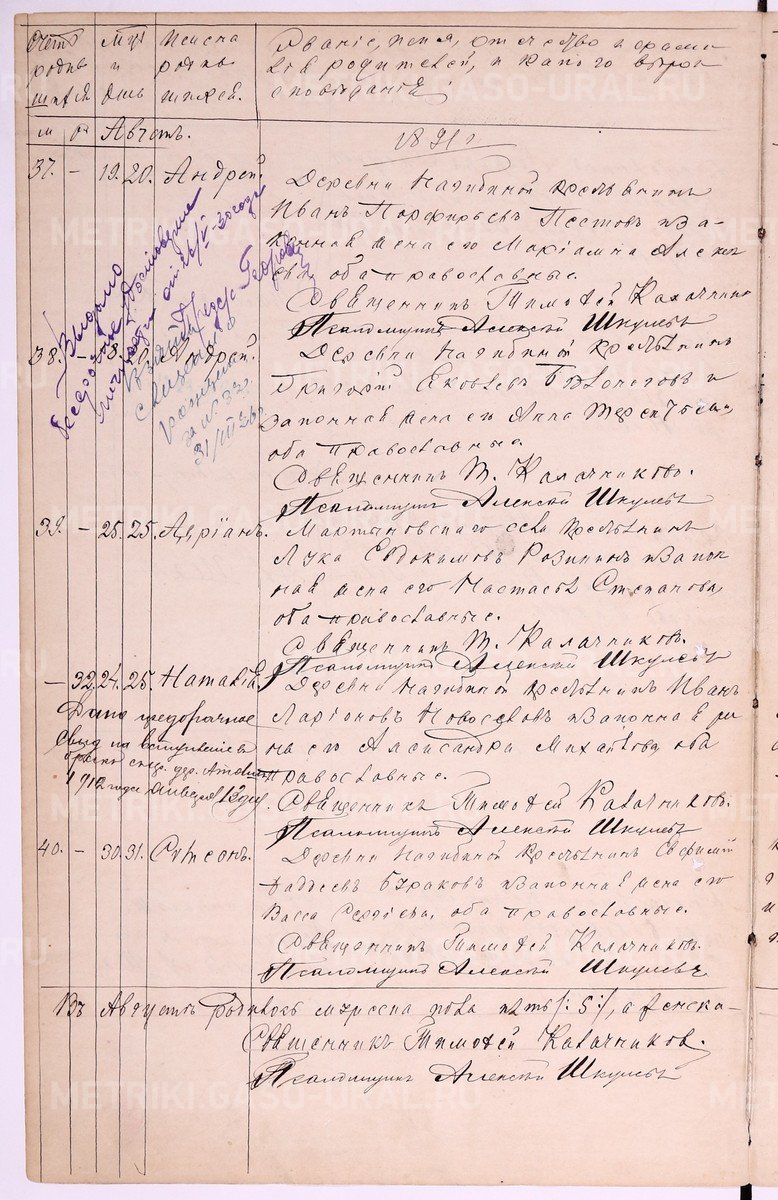 Счетъ родившихся
Мѣс. и день
Имена родившихся.
Званіе, имя, отчество и фамилія родителей, и какого вѣроисповѣданія
м ж Августъ.
1891 г
37. - 19. 20. Андрей.
Деревни Нагибиной крестьянинъ
Иванъ Порфирьевъ Пестовъ и за-
конная жена его Маріамна Алексѣ-
ева, оба православные.
Священникъ Тимофей Калачниковъ
Псаломщикъ Алексѣй Шкулевъ
38. - 20. Андрей.
Деревни Нагибиной крестьянинъ
Григорій Яковлевъ Бѣлоноговъ и
законная жена его Анна
оба православные.
Священникъ Т. Калачниковъ.
Псаломщикъ Алексѣй Шкулевъ
39. - 25. 25. Адріанъ.
Мартыновскаго села крестьянинъ
Лука Евдокимовъ и закон-
ная жена его Настасья Степанова,
оба православные.
Священникъ Т. Калачниковъ.
Псаломщикъ Алексѣй Шкулевъ
- 32. 24. 25. Наталія.
Деревни Нагибиной крестьянинъ Иванъ
Ларіоновъ Новоселовъ и законная же-
на его Александра Михайлова, оба
православные.
Священникъ Тимофей Калачниковъ.
Псаломщикъ Алексѣй Шкулевъ
40. - 30. 31. Симеонъ.
Деревни Нагибиной крестьянинъ Евфимій
Фаддеевъ Бураковъ и законная жена его
Васса Сергіева, оба православные.
Священникъ Тимофей Калачниковъ.
Псаломщикъ Алексѣй Шкулевъ
Въ Августѣ родилось мужеска пола пять /: 5 :/, а женска-
Священникъ Тимофей Калачниковъ.
Псаломщикъ Алексѣй Шкулевъ
Выдано
бессрочное удостовѣреніе
личности от 26/V-30 года
31/III 36
Дано предбрачное
свид. на вступленіе въ
бракъ
1912 года
METRIKI.GASO-URAL.RU